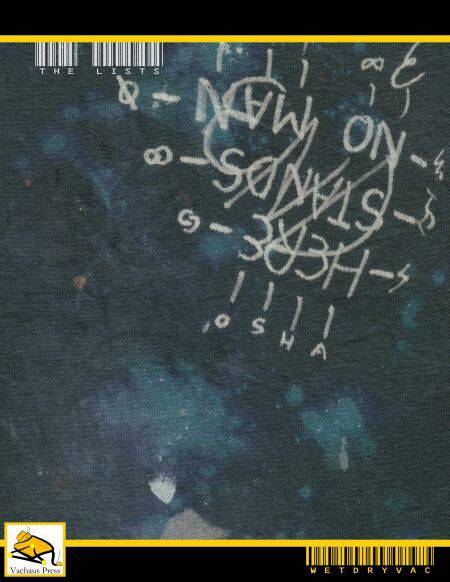 THE LISTS
NO MAN
STANDS
HERE
O S H A
Vachaus Press
WETDRYVAC